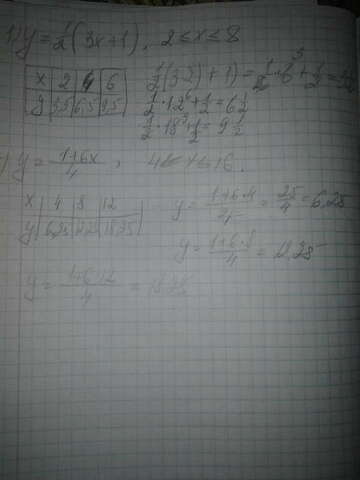 1) y = 1/2 (3x+1), 2≤x≤8
x | 2 | 4 | 6
y | 3,5 | 6,5 | 9,5
1/2 (3·2)+1) = 1/2 · 6 + 1/2 =
1/2 · 12 + 1/2 = 6 1/2
1/2 · 18 + 1/2 = 9 1/2
) y = 1+6x/4 , 4≤x≤16.
x | 4 | 8 | 12
y | 6,25 | 12,25 | 18,25
y = 1+6·4/4 = 25/4 = 6,25
y = 1+6·8/4 = 12,25
y = 1+6·12/4 = 18,25